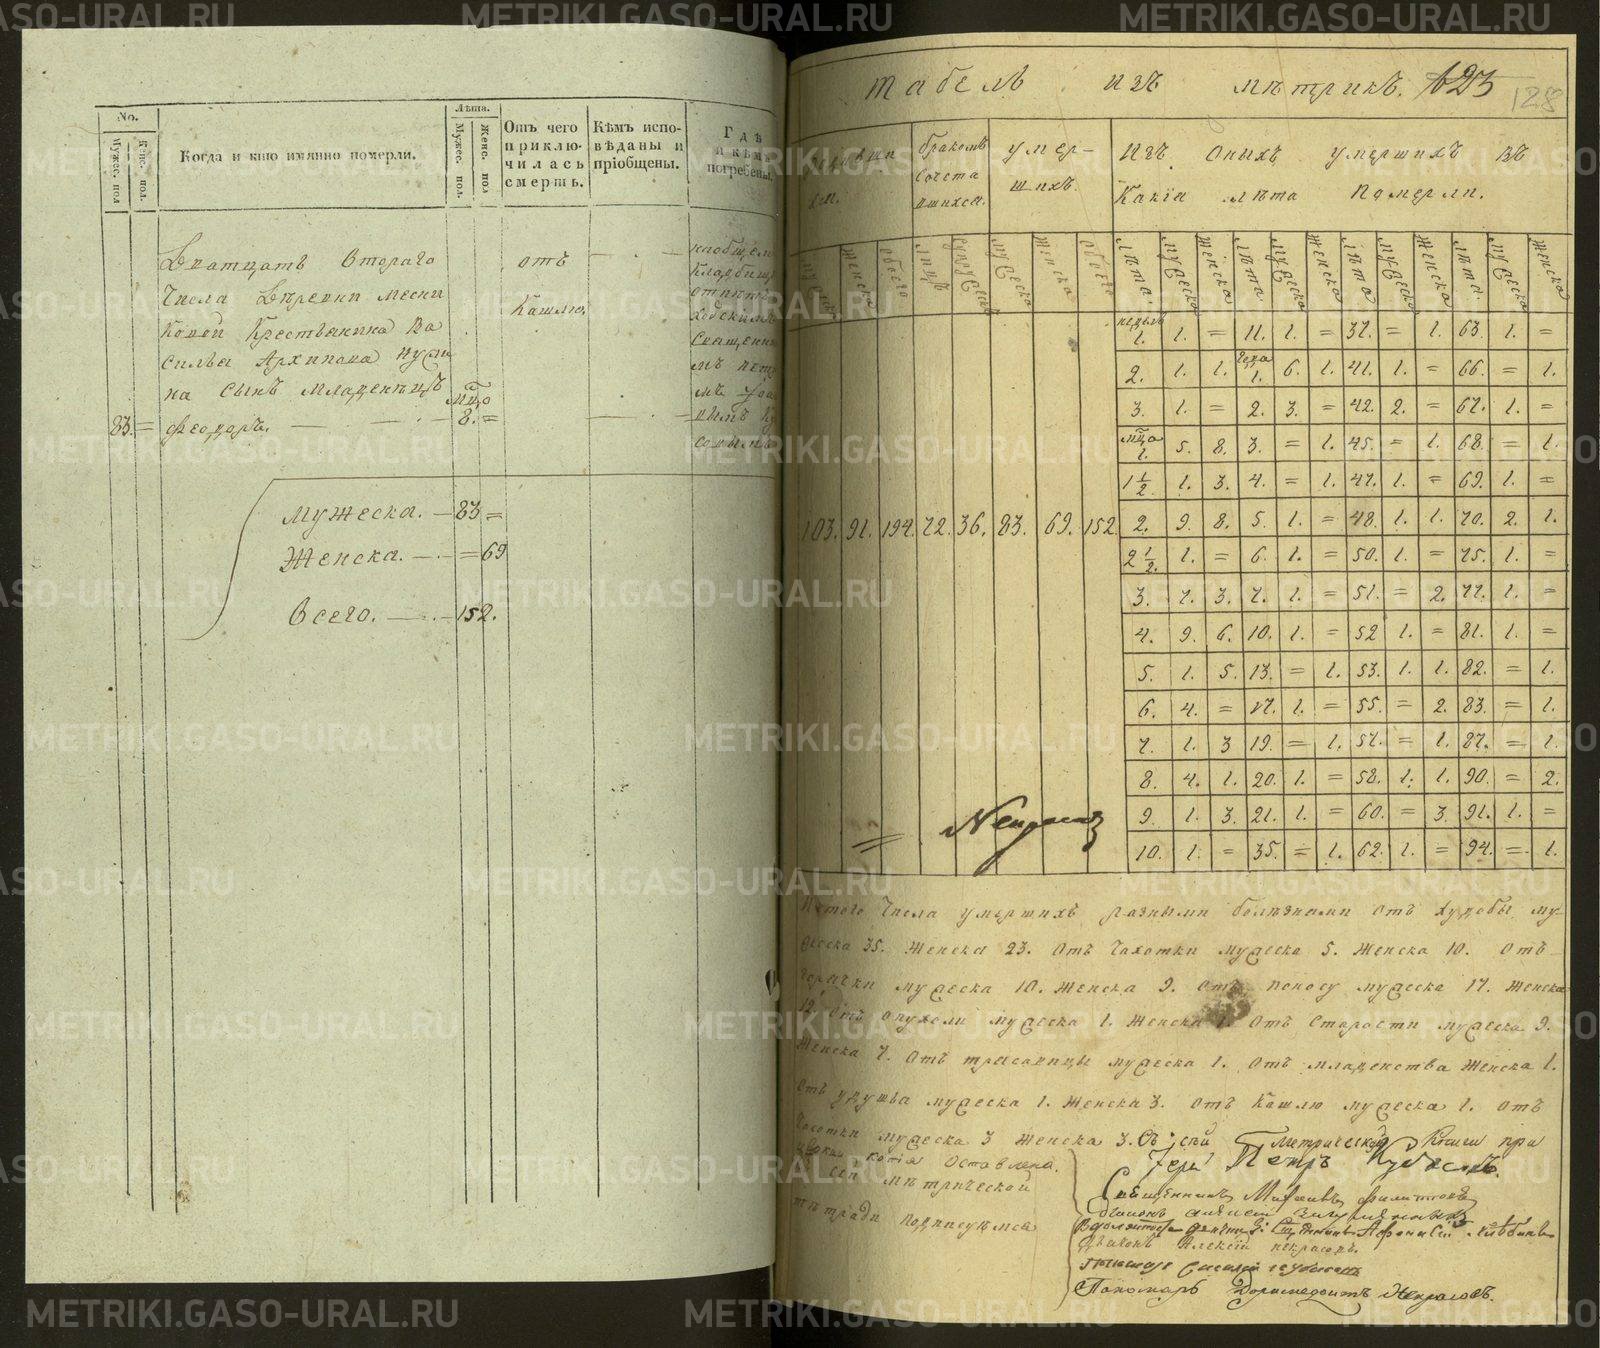 No.
Мужес. пол
Женс. пол.
Когда и кто имянно померли.
Лѣта.
Мужес. пол.
Женс. пол
Отъ чего
приклю-
чилась
смерть.
Кѣмъ испо-
вѣданы и
пріобщены.
Гдѣ
и кѣмъ
погребены.
Дватцать втораго
числа Деревни
Крестьянина Ва
силья Архипова
на сынъ младенецъ
83. = Феодоръ. — 8. =
отъ
Кашлю.
Мужеска. — 83 =
Женска. — = 69
Всего. — 152.
Табель изъ мѣтрикъ. 123
128
бракомъ
сочета
вшихся.
умер-
шихъ.
Изъ оныхъ умершихъ въ
Какія лѣта померли.
Женска
обоего
Мужеска
Женска
обоего
Лѣта.
Мужеска
Женска
Лѣта.
Мужеска
Женска
Лѣта
Мужеска
Женска
Лѣта.
Мужеска
Женска
103. 91. 194. 72. 36. 83. 69. 152.
недѣль
1. 1. = 11. 1. = 37. = 1. 63. 1. =
2. 1. 1. года 1. 6. 1. 41. 1. = 66. = 1.
3. 1. = 2. 3. = 42. 2. = 67. 1. =
мца
1. 5. 8. 3. = 1. 45. = 1. 68. = 1.
1 1/2. 1. 3. 4. = 1. 47. 1. = 69. 1. =
2. 9. 8. 5. 1. = 48. 1. 1. 70. 2. 1.
2 1/2. 1. = 6. 1. = 50. 1. = 75. 1. =
3. 7. 3. 7. 1. = 51. = 2. 77. 1. =
4. 9. 6. 10. 1. = 52 1. = 81. 1. =
5. 1. 5. 13. = 1. 53. 1. 1. 82. = 1.
6. 4. = 17. 1. = 55. = 2. 83. = 1.
7. 1. 3 19. = 1. 57. = 1. 87. = 1.
8. 4. 1. 20. 1. = 58. 1. 1. 90. = 2.
9. 1. 3. 21. 1. = 60. = 3. 91. 1. =
10. 1. = 35. = 1. 62. 1. = 94. = 1.
числа умершихъ разными болѣзнами отъ худобы му-
жеска 35. Женска 23. отъ чахотки мужеска 5. Женска 10. отъ
горячки мужеска 10. Женска 9. отъ поносу мужеска 17. Женска
12. отъ опухоли мужеска 1. Женска 1. отъ старости мужеска 9.
Женска 7. отъ трясовицы мужеска 1. отъ младенства Женска 1.
отъ удушья мужеска 1. Женска 3. отъ Кашлю мужеска 1. отъ
мужеска 3 Женска 3. Съ сей Метрической Книги при
церкви копія Оставлена.
Іерей Петръ
Къ сей мѣтрической
тѣтради подписуемся
Священникъ
Діаконъ Алексій Некрасовъ.
Пономарь Доримедонтъ Некрасовъ.
METRIKI.GASO-URAL.RU